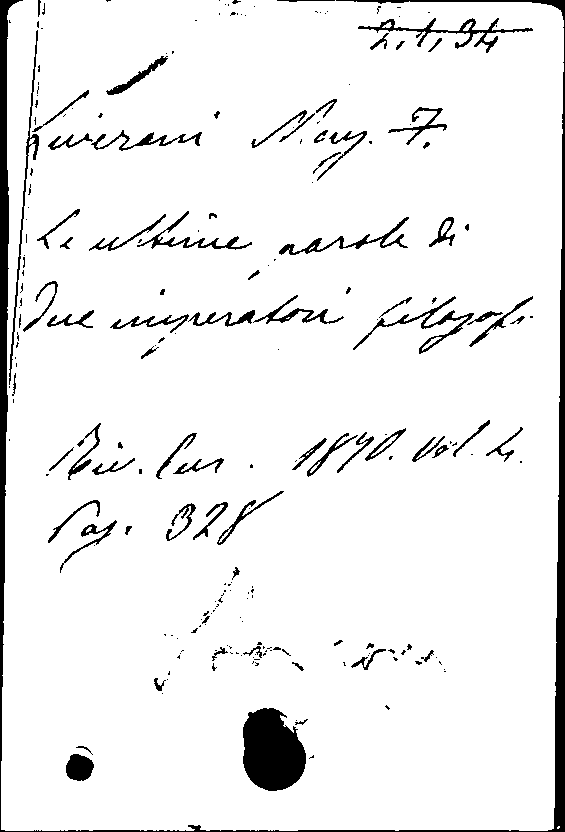 2.1.34
Liverani May. F.
Le ultime parole di
due imperatori filosofi
Riv. Eur. 1870. Vol. 4.
Pag. 328